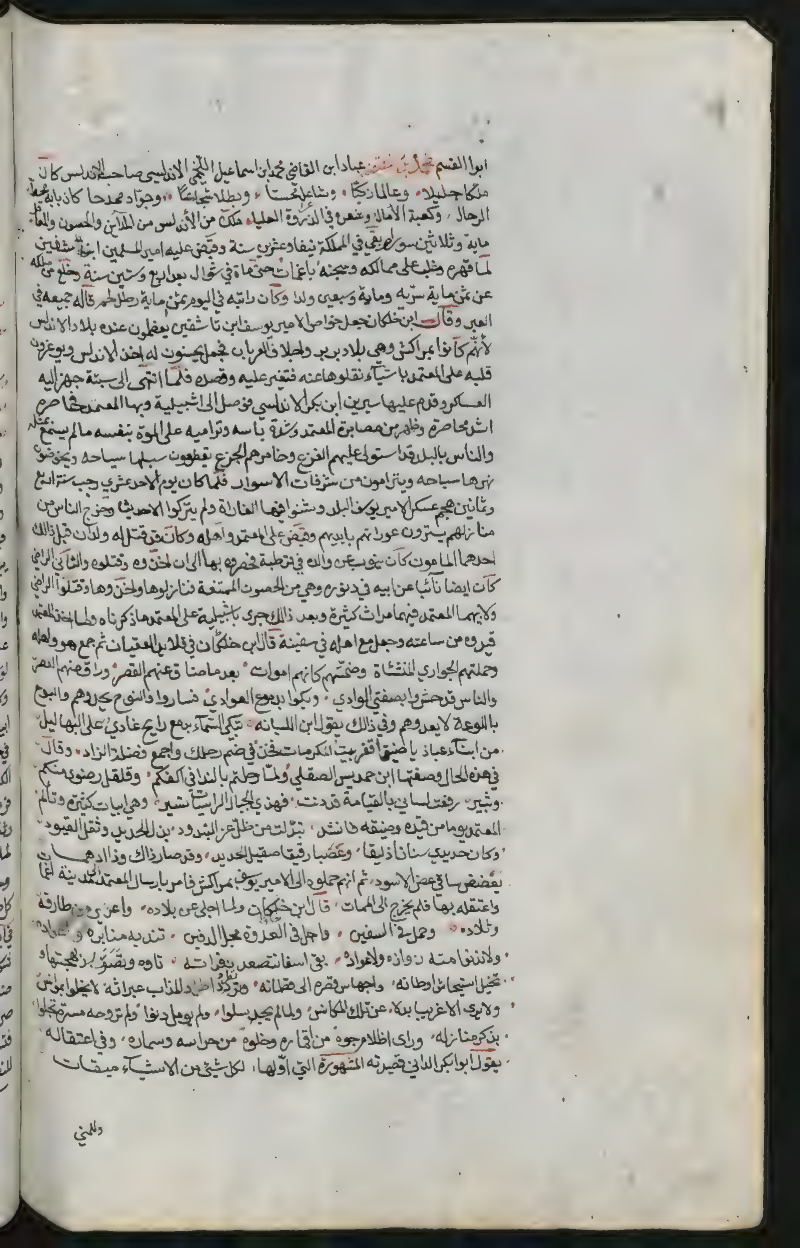 ابوا القسم محمد بن عباد ابن القاضي محمد ابن اسماعيل اللخمي الاندلسي صاحب الاندلس كان
ملكا جليلا وعالما زكيا وشاعرا محسنا وبطلا شجاعا وجوادا ممدحا كان بابه محط
الرحال وكعبة الآمال وشعره في الذروة العليا ملك من الأندلس من المداين والحصون والمعاقل
ماية وثلاثين سورا بقي في المملكة نيفا وعشرين سنة وقبض عليه امير المسلمين ابن تاشفين
لما قهره وغلب على ممالكه وسجنه باغمات حتى مات في شوال بعد اربع وستين سنة وخلع من ملكه
عن ثمان ماية سريه وماية وسبعين ولدا وكان راتبه في اليوم ثمن ماية رطل لحم قاله جميعه في
العبر وقال ابن خلكان جعل خواص الامير يوسف ابن تاشفين يعظمون عنده بلاد الاندلس
لأنهم كانوا بمراكش وهي بلاد بربر واجلاف العربان فجعل يحسنون له اخذ الاندلس ويوغرون
قلبه على المعتمد باشياء نقلوها عنه فتغير عليه وقصده فلما انتهى الى سبتة جهز اليه
العساكر وقدم عليها سيرين ابن بكر الاندلسي فوصل الى اشبيلية وبها المعتمد فحاصره
اشد محاصرة وظهر من مصابرة المعتمد وشدة باسه وتراميه على الموت بنفسه مالم يسمع بمثله
والناس بالبلد قد استولى عليهم الفزع وخامرهم الجزع يقطعون سبلها سياحه ويخوضون
نهرها سباحه ويترامون من شرفات الاسوار فلما كان يوم الاحد عشري رجب سنة اربع
وثمانين هجم عسكر الامير يوسف البلد وشنوا فيها الغارة ولم يتركوا لاحد شيا وخرج الناس من
منازلهم يسترون عوراتهم بايديهم وقبض على المعتمد واهله وكان قد قتل له ولدان قبل ذالك
احدهما المامون كان ينوب عن والده في قرطبة فحصروه بها الى ان اخذوه وقتلوه والثاني الراضي
كان ايضا نائبا عن ابيه في رنده وهي من الحصون الممتنعة فنازلوها واخذوها وقتلوا الراضي
ولابيهما المعتمد فيهما مراث كثيرة وبعد ذالك جرى باشبيلية على المعتمد ما ذكرناه ولما اخذ المعتمد
قيدوه من ساعته وجعل مع اهله في سفينة قال ابن خاقان في قلايد العقيان ثم جمع هو واهله
وحملتهم الجواري المنشئاة وضمتهم كانهم اموات بعد ما ضاق عنهم القصر وراق منهم العصر
والناس قد حشروا بضفتي الوادي وبكوا بدموع الغوادي فساروا والنوح يحدوهم والبوح
باللوعة لا يعدوهم وفي ذلك يقول ابن اللبانه تبكي السماء بدمع رايح غادي على البهاليل
من ابناء عباد يا ضيف اقفر بيت المكرمات فخذ في ضم رحلك واجمع فضلة الزاد وقال
في هذه الحال وصفتها ابن حمديس الصقلي ولما رحلتم بالندا في اكفكم وقلقل رضوى منكم
وثبير رفعت لساني بالقيامة قد دنت فهذي الجبال الراسيات تسير وهي ابيات كثيرة وتالم
المعتمد يوما من قيده وضيقه فانشد تبدلت من ظل عز البنود بذل الحديد وثقل القيود
وكان حديدي سنانا ذليقا وعضبا رقيقا صقيل الحديد وقد صار ذاك وذا ادهما
يعض بساقي عض الاسود ثم انهم حملوه الى الامير يوسف بمراكش فامر بارسال المعتمد الى مدينة اغمات
واعتقله بها فلم يخرج الى الممات قال ابن خاقان ولما اجلي عن بلاده واعري من طارفه
وتلاده وحمل في السفين واحل في العدوة محل الدفين تندبه منابره و
ولا تدنوا منه زواره ولا عواده بقي اسفا تتصعد زفراته
تخيل استيحاش اوطانه واجهاش قصره الى قطانه
ولا يرى الا غريبا بدلا عن تلك المكانس ولما لم يجد سلوا ولم يومل دنوا ولم ير وجه مسرة مجلوا
تذكر منازله وراى اظلام جوه من اقماره وخلوه من حراسه وسماره وفي اعتقاله
يقول ابوا بكر الداني قصيدته المشهورة التي اولها لكل شيئ من الاشياء ميقات
وللمني